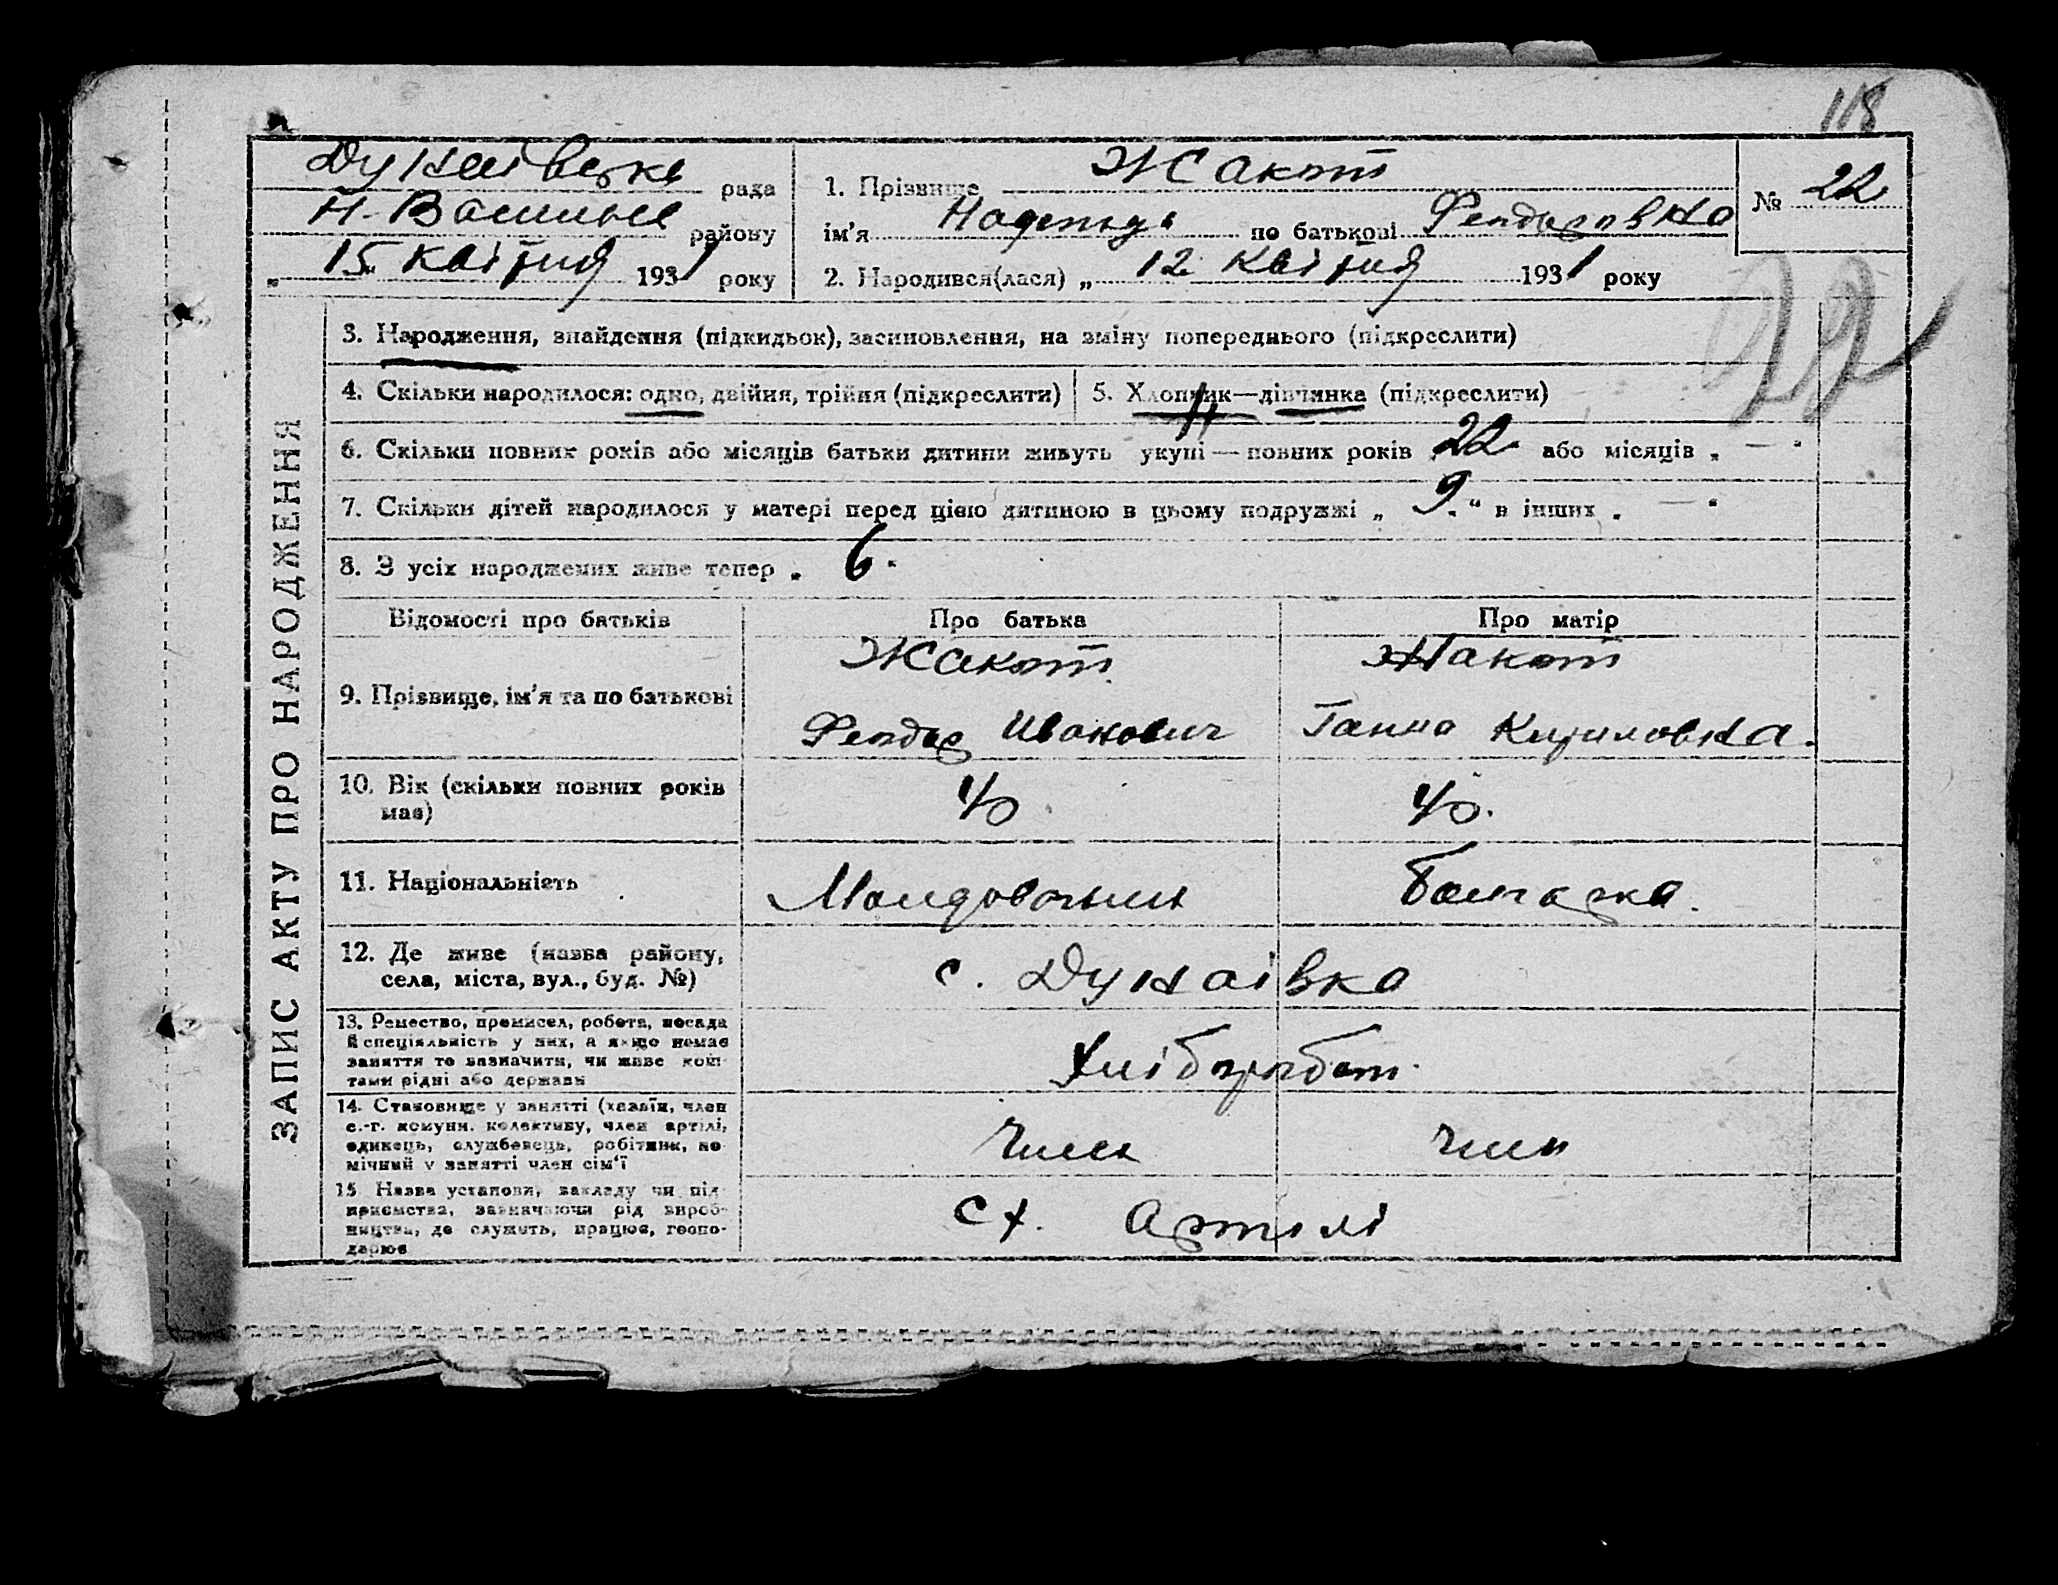 118
Дунаївська рада
Н-Васильє району
„ 15 " квітня 1931 року
1. Прізвище Жакот
ім'я Надежда по батькові Феодоровна
2. Народився(лася) „ 12 квітня 1931 року
№ 22
22
ЗАПИС АКТУ ПРО НАРОДЖЕННЯ
3. Народження, знайдення (підкидьок), засиновлення, на зміну попереднього (підкреслити)
4. Скільки народилося: одно, двійня, трійня (підкреслити)
5. Хлопчик—дівчинка (підкреслити)
6. Скільки повних років або місяців батьки дитини живуть укупі — повних років 22 або місяців „ — "
7. Скільки дітей народилося у матері перед цією дитиною в цьому подружжі „ 9. " в інших „ — "
8. З усіх народжених живе тепер „ 6 "
Відомості про батьків
Про батька
Про матір
9. Прізвище, ім'я та по батькові
Жакот
Феодор Иванович
Жакот
Ганна Кириловна.
10. Вік (скільки повних років
має)
40
40.
11. Національність
Молдованин
Болгарка.
12. Де живе (назва району,
села, міста, вул., буд. №)
с. Дунаівка
13. Ремество, промисел, робота, посада
й спеціальність у них, а якщо немає
заняття то зазначити, чи живе кош-
тами рідні або держави
Хлібороботт.
14. Становище у занятті (хазяїн, член
с.-г. комуни, колективу, член артілі,
одинець, службовець, робітник, по-
мічний у занятті член сім'ї
Член
член
15. Назва установи, закладу чи під-
приємства, зазначаючи рід вироб-
ництва, де служить, працює, госпо-
дарює
СХ. Артілі